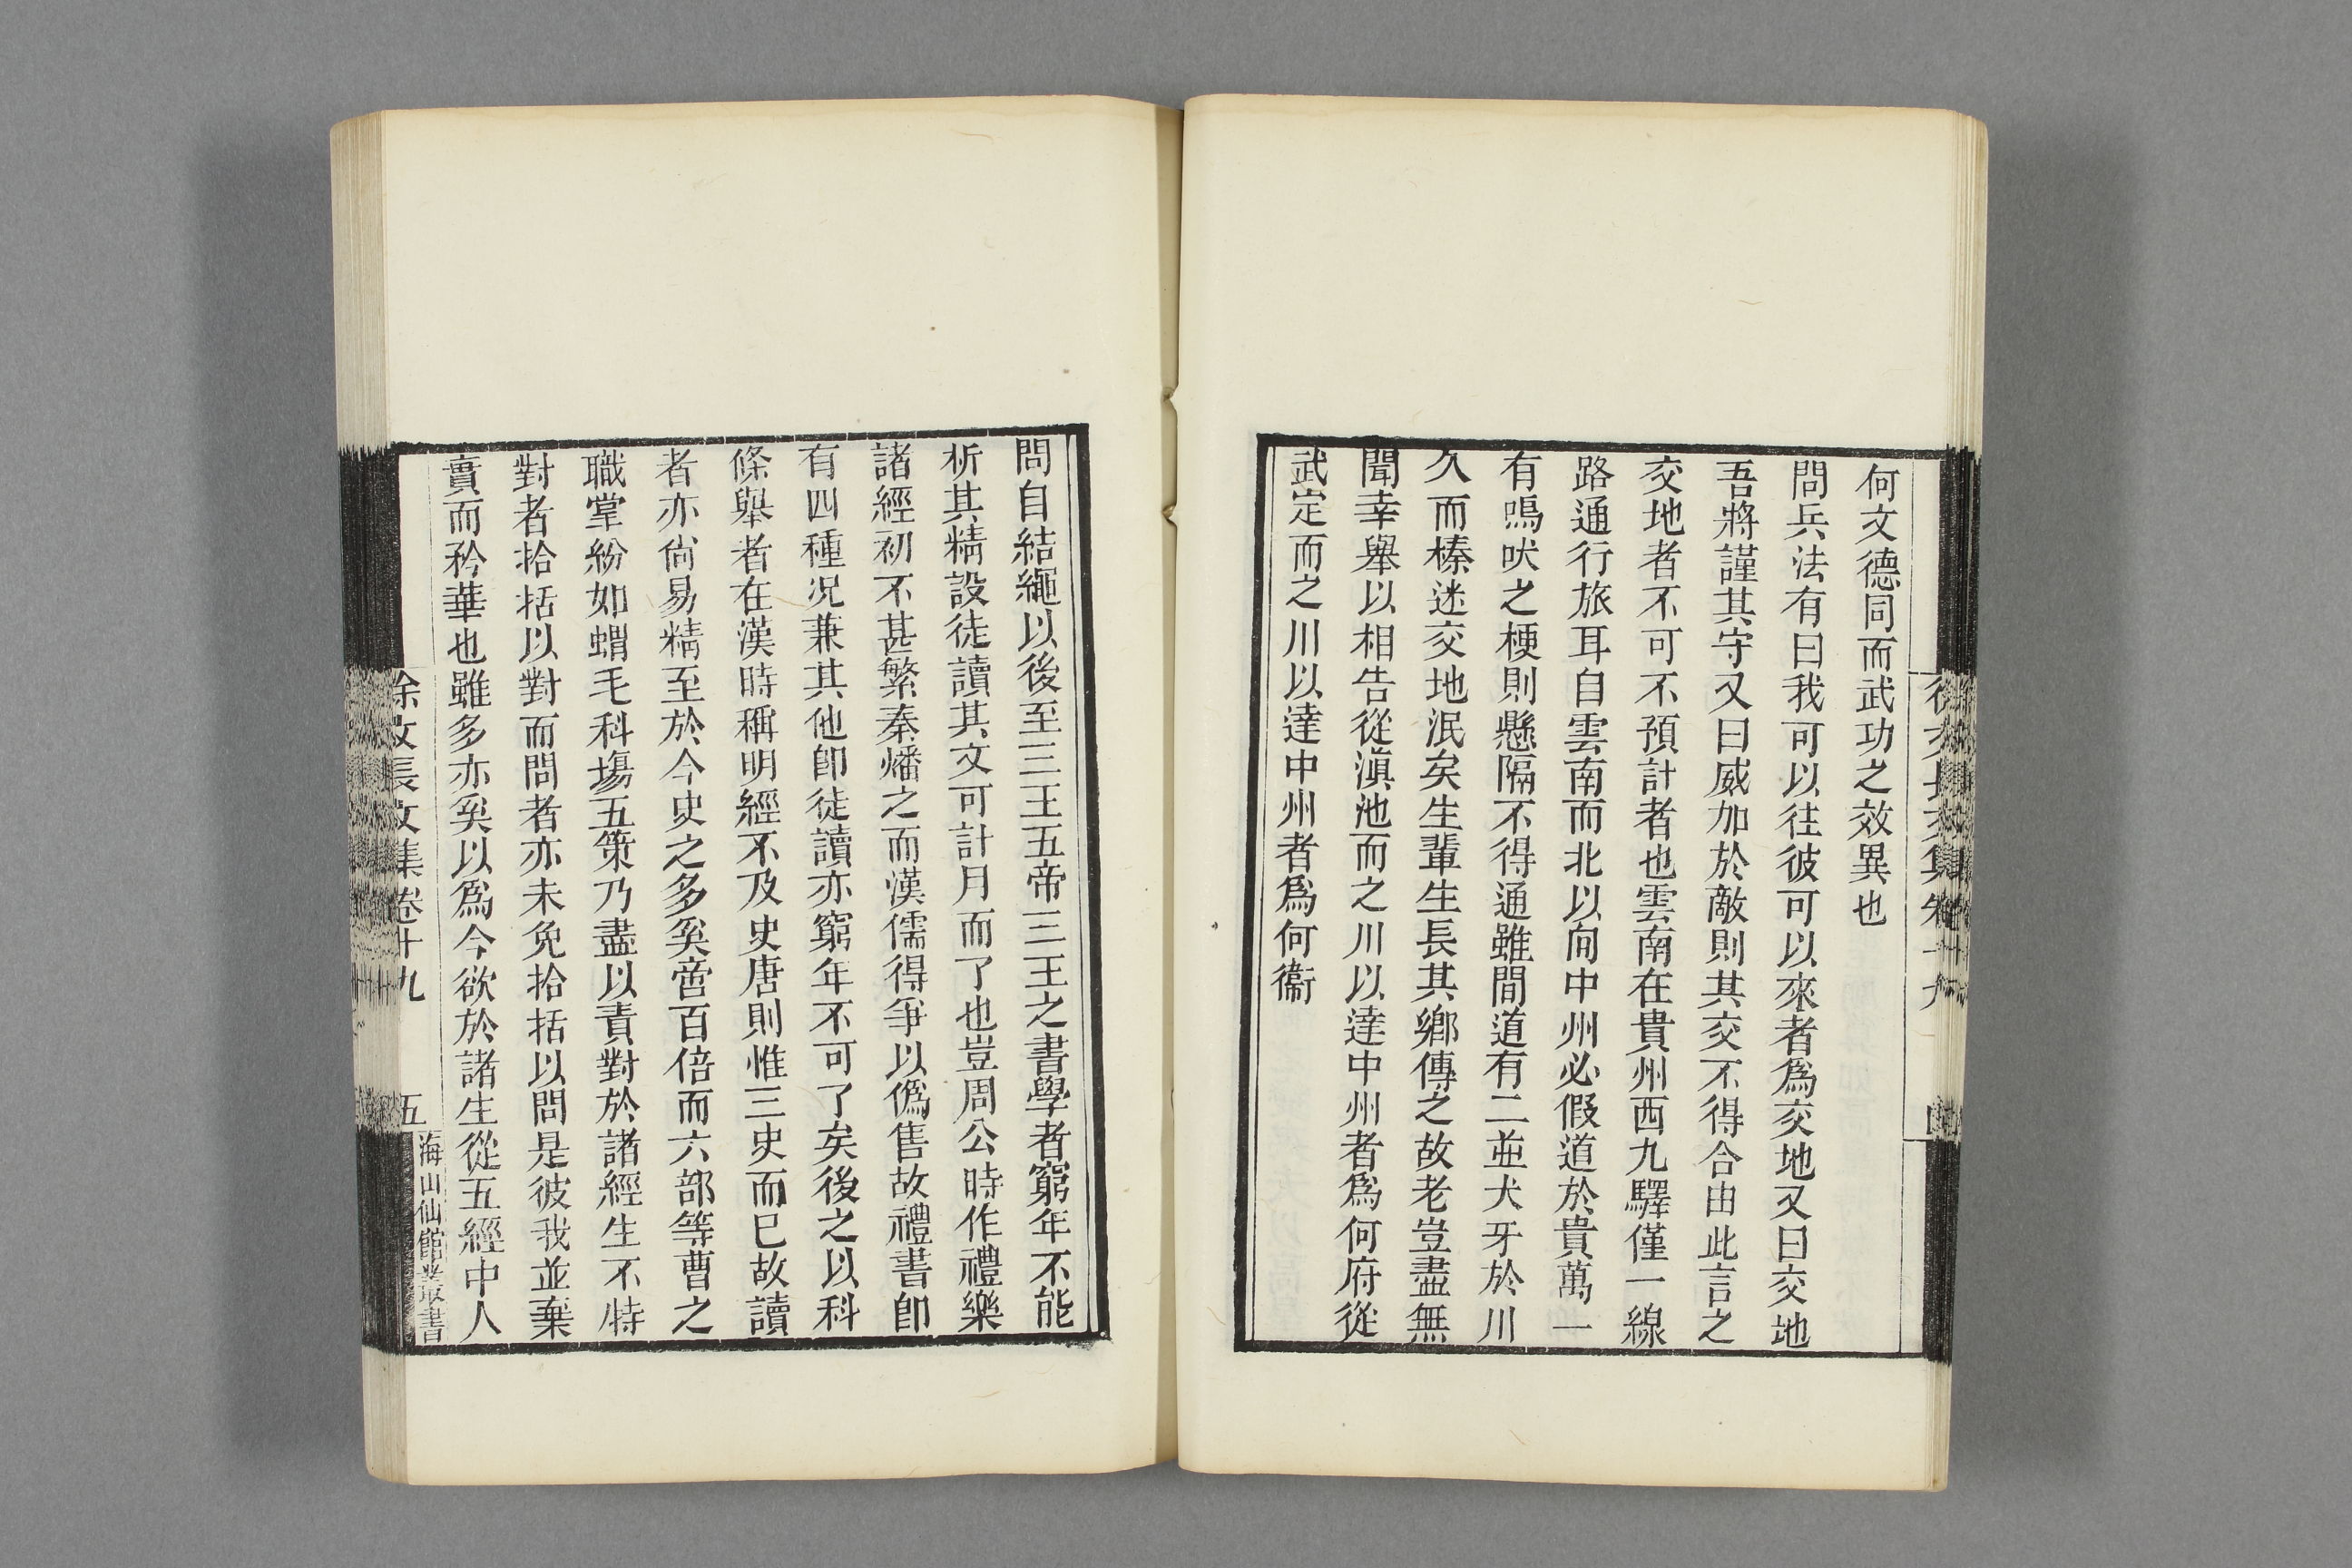 何文德同而武功之效異也
問兵法有曰我可以往彼可以來者爲交地又曰交地
吾將謹其守又曰威加於敵則其交不得合由此言之
交地者不可不預計者也雲南在貴州西九驛僅一線
路通行旅耳自雲南而北以向中州必假道於貴萬一
有鳴吠之梗則懸隔不得通雖間道有二並犬牙於川
久而榛迷交地泯矣生輩生長其鄉傳之故老豈盡無
聞幸舉以相告從滇池而之川以達中州者爲何府從
武定而之川以達中州者爲何衞
問自結繩以後至三王五帝三王之書學者窮年不能
析其精設徒讀其文可計月而了也豈周公時作禮樂
諸經初不甚繁秦燔之而漢儒得爭以僞售故禮書卽
有四種况兼其他卽徒讀亦窮年不可了矣後之以科
條舉者在漢時稱明經不及史唐則惟三史而已故讀
者亦尙易精至於今史之多奚啻百倍而六部等曹之
職掌紛如蝟毛科塲五策乃盡以責對於諸經生不特
對者拾括以對而問者亦未免拾括以問是彼我並棄
實而矜華也雖多亦奚以爲今欲於諸生從五經中人
徐文長文集卷十九 五
海山仙館叢書